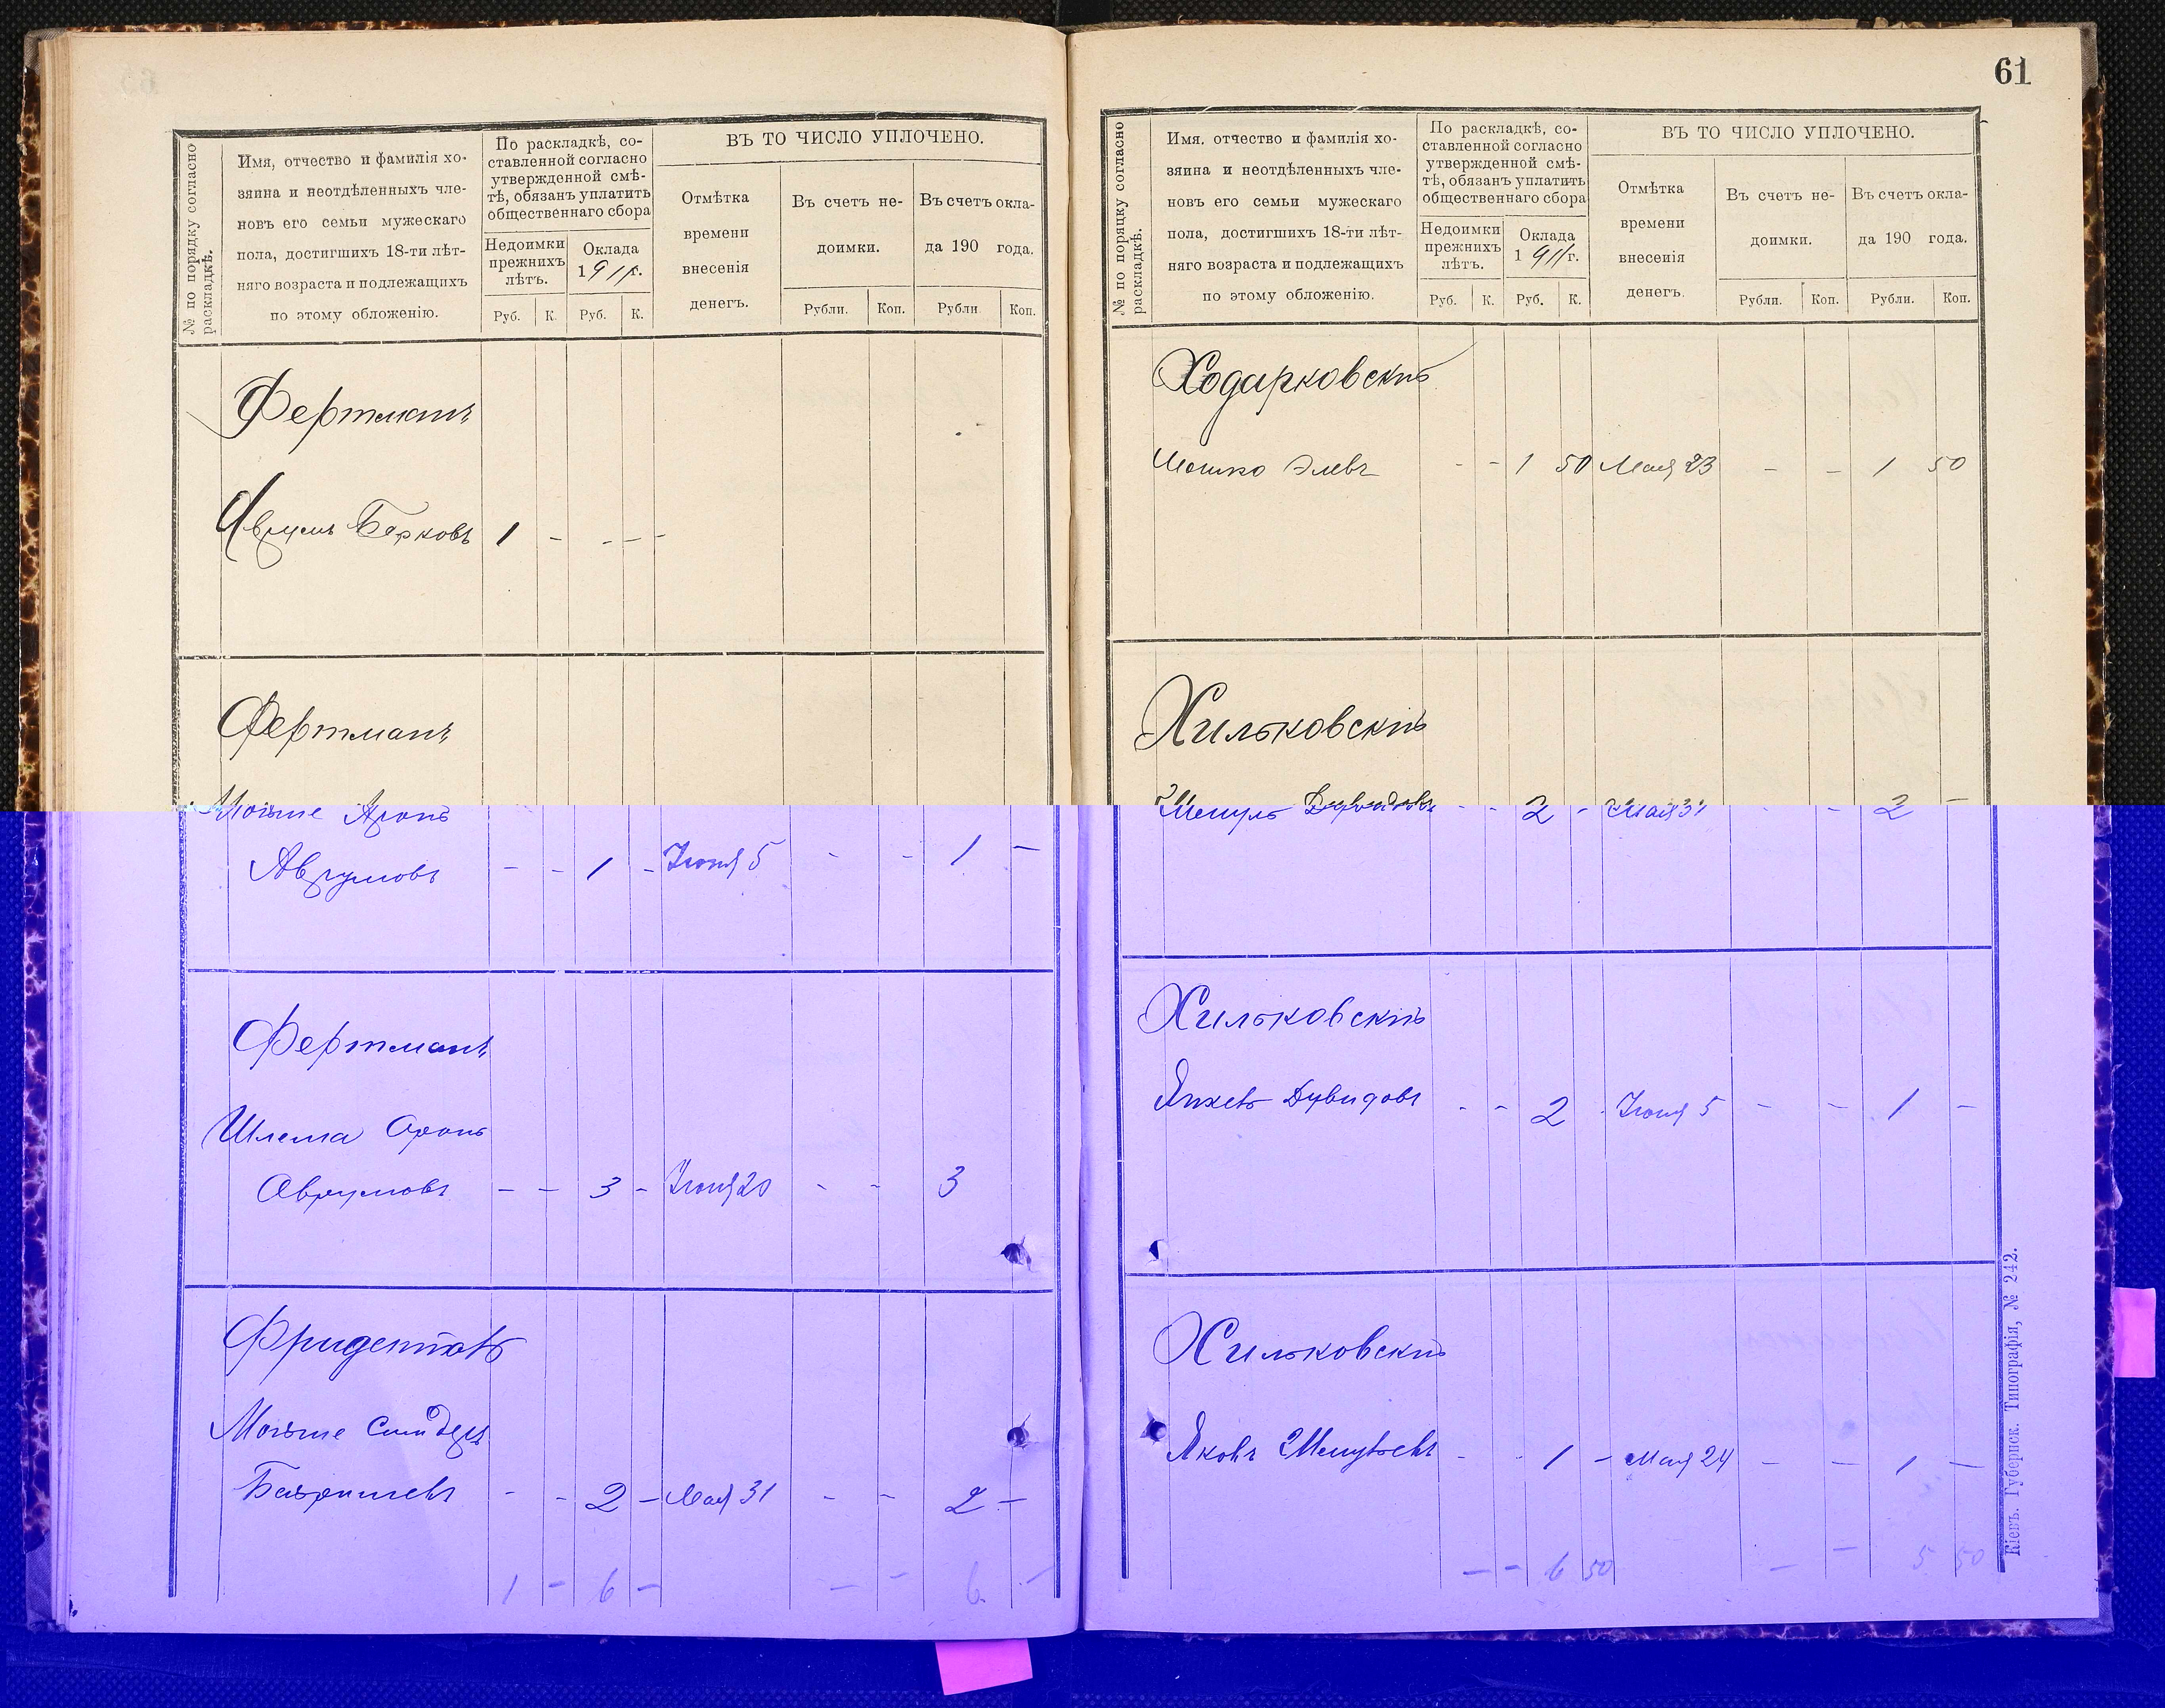 № по порядку согласно раскладкѣ.
Имя, отчество и фамилія хо-
зяина и неотдѣленныхъ чле-
новъ его семьи мужескаго
пола, достигшихъ 18-ти лѣт-
няго возраста и подлежащихъ
по этому обложенію.
По раскладкѣ, со-
ставленной согласно
утвержденной смѣ-
тѣ, обязанъ уплатить
общественнаго сбора
Недоимки прежнихъ лѣтъ.
Оклада 1911 г.
Руб. К. Руб. К.
ВЪ ТО ЧИСЛО УПЛОЧЕНО.
Отмѣтка времени внесенія денегъ.
Въ счетъ не-
доимки.
Въ счетъ окла-
да 190 года.
Рубли. Коп. Рубли Коп.
Фертманъ
Аврумъ Берковъ 1 - - - -
Фертманъ
Мойше Аронъ
Аврумовъ - - 1 - Іюня 5 - - 1 -
Фертманъ
Шлема Аронъ
Аврумовъ - - 3 - Іюня 20 - - 3
Мойше
- - 2 - Мая 31 - - 2 -
1 - 6 - - - 6 -
61
№ по порядку согласно раскладкѣ.
Имя, отчество и фамилія хо-
зяина и неотдѣленныхъ чле-
новъ его семьи мужескаго
пола, достигшихъ 18-ти лѣт-
няго возраста и подлежащихъ
по этому обложенію.
По раскладкѣ, со-
ставленной согласно
утвержденной смѣ-
тѣ, обязанъ уплатить
общественнаго сбора
Недоимки прежнихъ лѣтъ.
Оклада 1911 г.
Руб. К. Руб. К.
ВЪ ТО ЧИСЛО УПЛОЧЕНО.
Отмѣтка времени внесенія денегъ.
Въ счетъ не-
доимки.
Въ счетъ окла-
да 190 года.
Рубли. Коп. Рубли. Коп.
Ходарковскій
Мошко Элевъ - - 1 50 Мая 23 - - 1 50
Хильковскій
Шмуль Дувидовъ - - 2 - Мая 31 - - 2 -
Хильковскій
Янкель Дувидовъ - - 2 - Іюня 5 - - 1 -
Хильковскій
Яковъ Шмулевъ - - 1 - Мая 24 - - 1 -
- - 6 50 - - 5 50
Кіевъ. Губернск. Типографія, № 242.